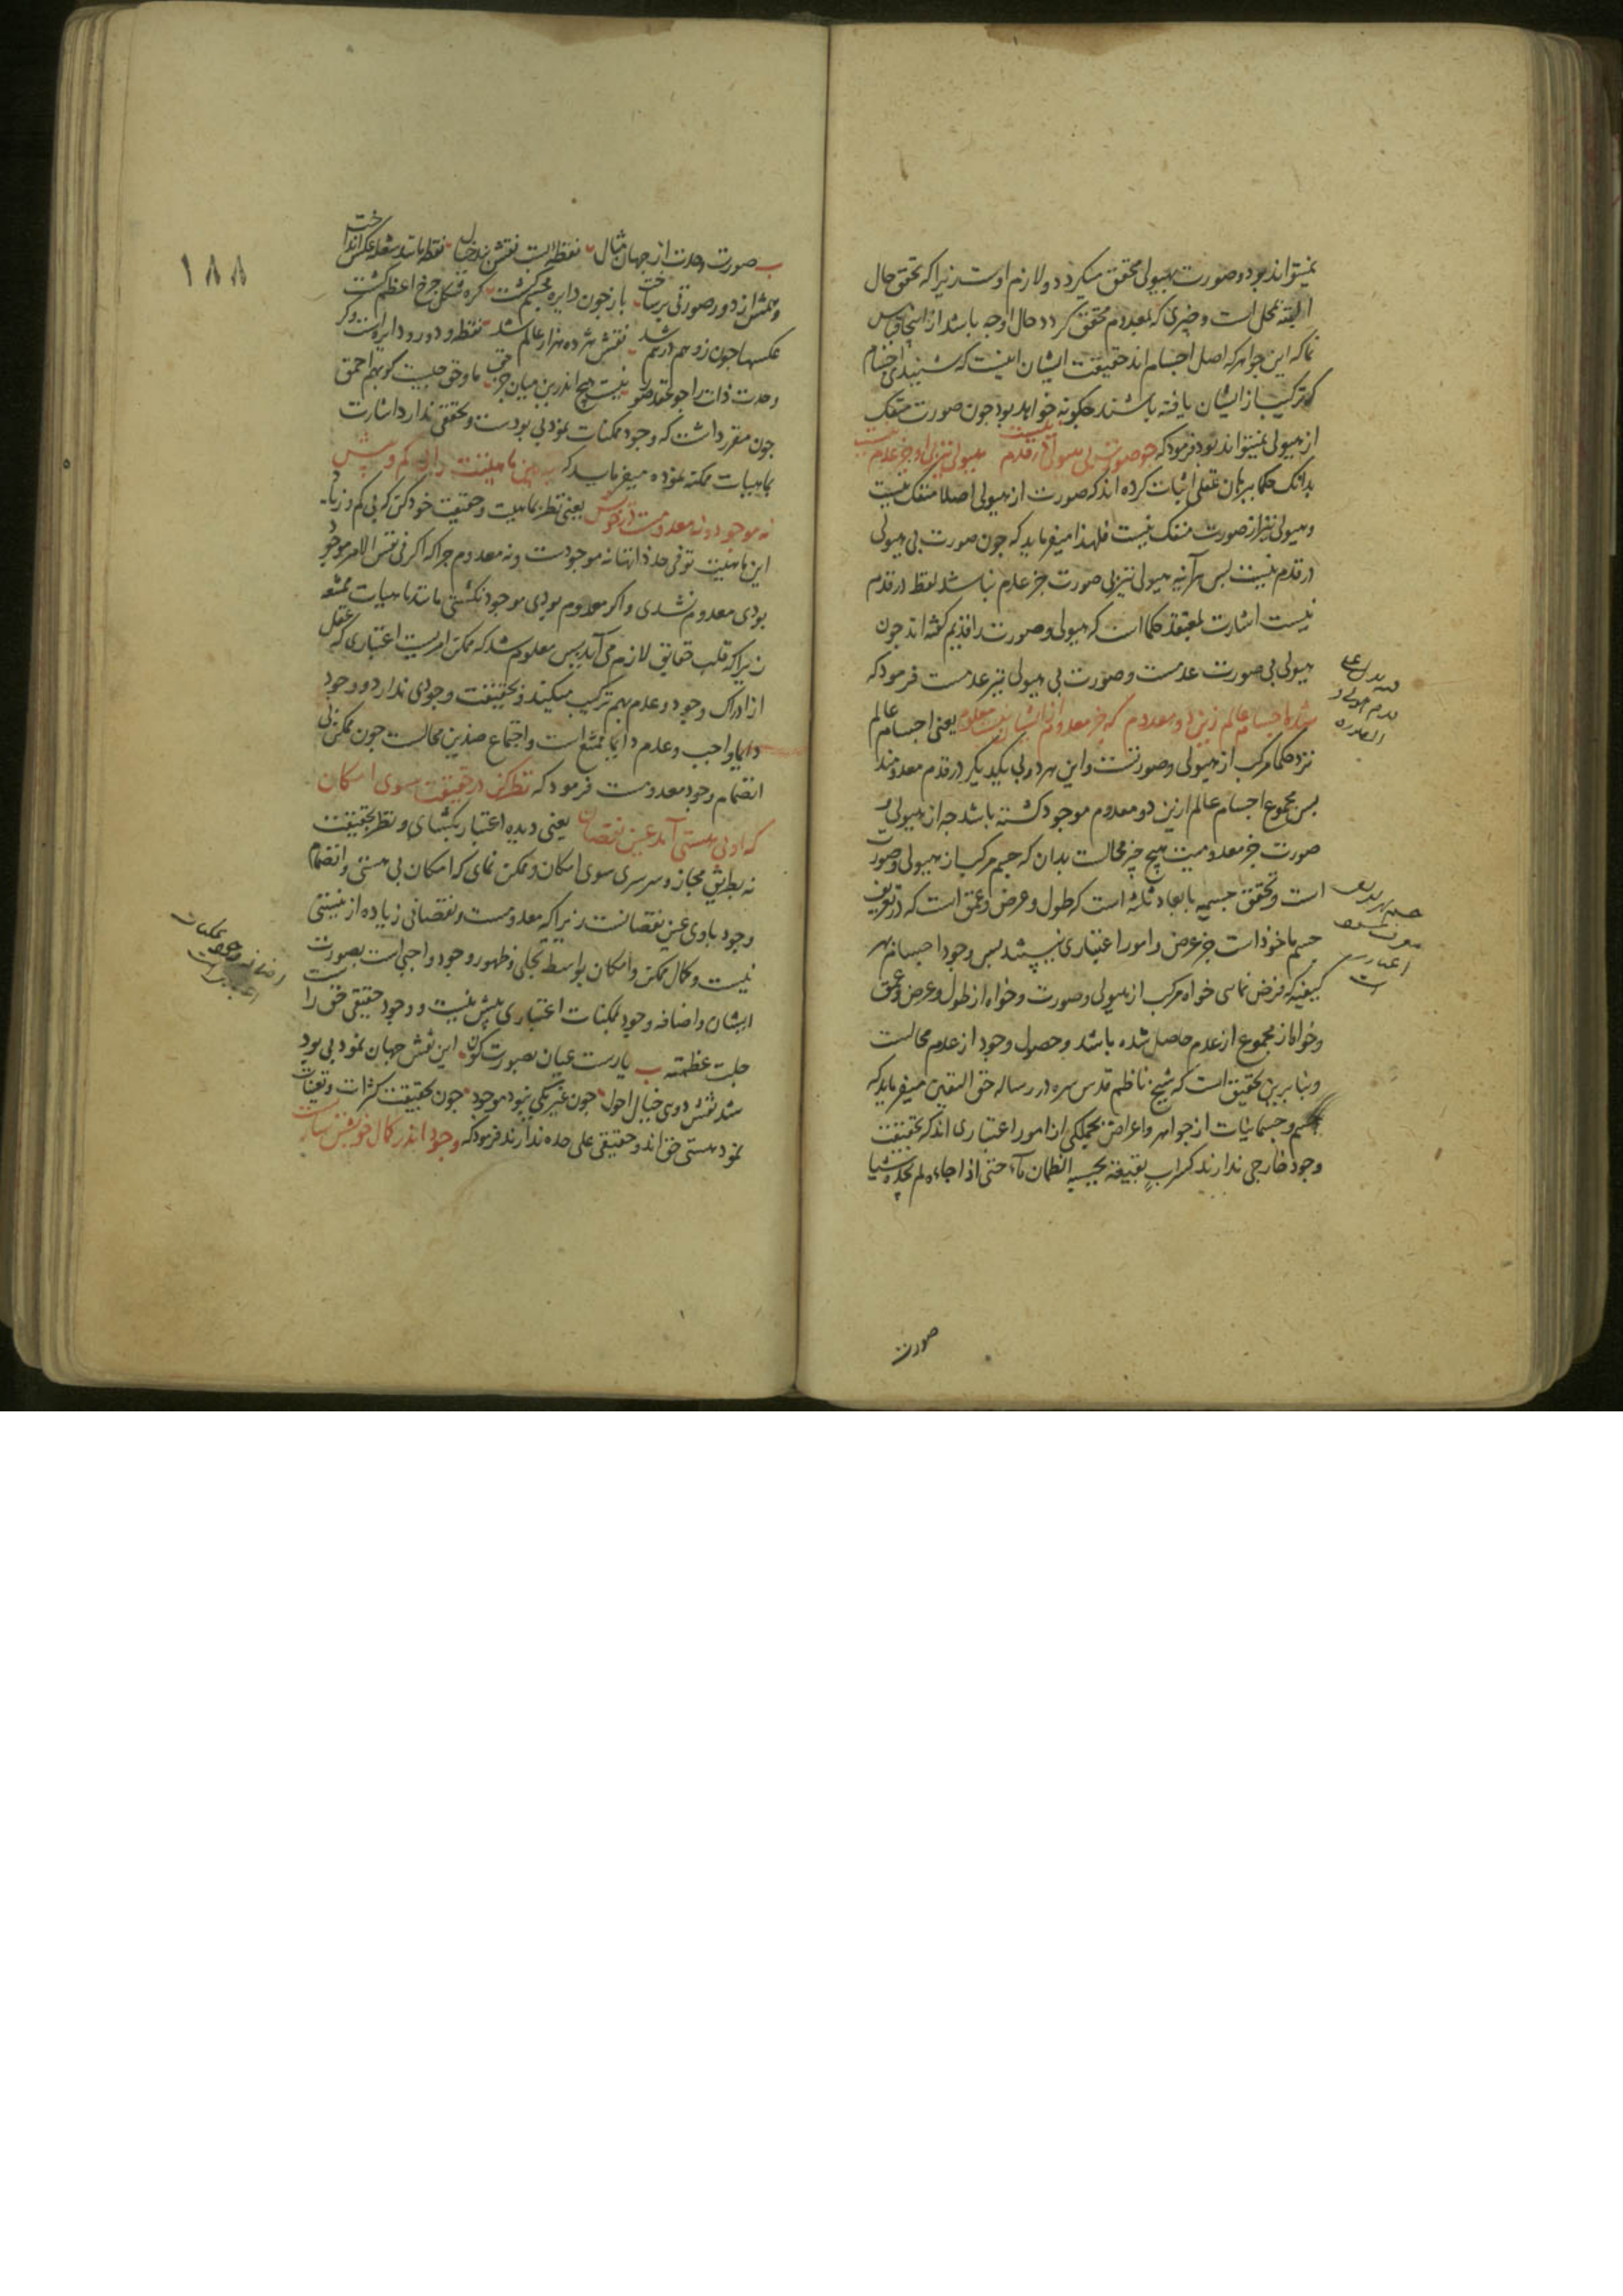 نمیتواند بود و صورت بهیولی محقق میکردد و لازم اوست زیرا که تحقق حال
البته بمحل است و چیزی که بمعدوم محقق کردد حال او چه باشد از اینجا قیاس
نما که این جواهر که اصل اجسام اند حقیقت ایشان اینست که شنیدی اجسام
که ترکیب از ایشان یافته باشند چکونه خواهد بود چون صورت منفک
از هیولی نمیتواند بود فرمود که چو صورت بی هیولی در قدم نیست هیولی نیز بی او جز عدم نیست
بدانک حکما ببرهان عقلی اثبات کرده اند که صورت از هیولی اصلا منفک نیست
و هیولی نیز از صورت منفک نیست فلهذا میفرماید که چون صورت بی هیولی
در قدم نیست پس هرآینه هیولی نیز بی صورت جز عدم نباشد لفظ در قدم
نیست اشارت بمعتقد حکما است که هیولی و صورت را قدیم گفته اند چون
هیولی بی صورت عدمست و صورت بی هیولی نیز عدمست فرمود که
شد اجسام عالم زین دو معدوم که جز معدوم از ایشان نیست معلوم یعنی اجسام عالم
نزد حکما مرکب از هیولی و صورتست و این هر دو بی یکدیگر در قدم معدومند
پس مجموع اجسام عالم ازین دو معدوم موجود کشته باشد چه از هیولی و
صورت جز معدومیت هیچ چیز محالست بدان که جسم مرکب از هیولی و صورت
است و تحقق جسمیه بابعاد ثلثه است که طول و عرض و عمق است که در تعریف
جسم ماخوذ است جز عرض و امور اعتباری نیستند پس وجود اجسام بهر
کیفیه که فرض نمائی خواه مرکب از هیولی و صورت و خواه از طول و عرض و عمق
و خواه از مجموع از عدم حاصل شده باشد و حصول وجود از عدم محالست
و بنا برین تحقیق است که شیخ ناظم قدس سره در رساله حق الیقین میفرماید که
جسم و جسمانیات از جواهر و اعراض بجملکی از امور اعتباری اند که بحقیقت
وجود خارجی ندارند کسراب بقیعة یحسبه الظمآن ماء حتی اذا جاءه لم یجده شیا
صورت
۱۸۸
صورت وحدت از جهان مثال نقطه است نقش بند خیال نقطه باشد شعله عکس انداخت
وهمش از دور صورتی بر ساخت باز چون دایره مجسم کشت کره شکل چرخ اعظم کشت
عکسها چون زوهم در هم شد نقش هژده هزار عالم شد نقطه و دور و دایره است و کر
وحدت ذات را چو نیست هیچ اندرین میان جز حق ما و حق چیست کو بهم احمق
چون مقرر داشت که وجود ممکنات نمود بی بودست و تحققی ندارد اشارت
بماهیات ممکنه نموده میفرماید که ببین ماهیتت را بی کم و بیش
نه موجود و نه معدومست از خویش یعنی نظر بماهیت و حقیقت خود کن که بی کم و زیاد
این ماهیت تو فی حد ذاتها نه موجودست و نه معدوم چرا که اگر فی نفس الامر موجود
بودی معدوم نشدی و اگر معدوم بودی موجود نکشتی مانند ماهیات ممتنعه
زیرا که قلب حقایق لازم می آید پس معلوم شد که ممکن امریست اعتباری که عقل
از ادراک وجود و عدم بهم ترکیب میکند و بحقیقت وجودی ندارد و وجود
دایما واجب و عدم دایما ممتنع است و اجتماع ضدین محالست چون ممکن بی
انضمام وجود معدومست فرمود که نظر کن در حقیقت سوی امکان
که او بی هستی آمد عین نقصان یعنی دیده اعتبار بکشای و نظر بحقیقت
نه بطریق مجاز و سرسری سوی امکان و ممکن نمای که امکان بی هستی و انضمام
وجود باوی عین نقصانست زیرا که معدومست و نقصانی زیاده از نیستی
نیست و کمال ممکن و امکان بواسطه تجلی و ظهور وجود واجبی است بصورت
ایشان و اضافه وجود بممکنات اعتباری بیش نیست و وجود حقیقی حق را ست
جلت عظمته یارست عیان بصورت کون این نقش جهان نمود بی بود
شد نقش دوی خیال احول چون غیر یکی نبود موجود چون بحقیقت کثرات و تعینات
نمود هستی حق اند و حقیقتی علی حده ندارند فرمود که وجود اندر کمال خویش ساریست